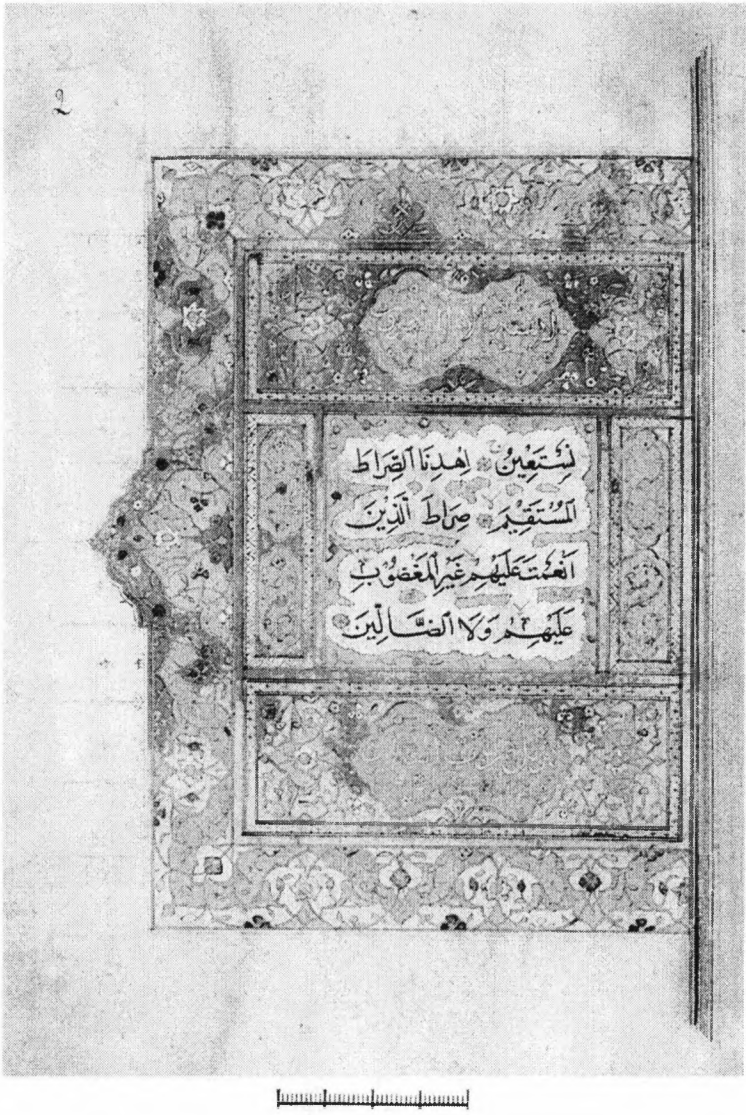 2
نَسْتَعِينُ اِهْدِنَا الصِّرَاطَ
الْمُسْتَقِيمَ صِرَاطَ الَّذِينَ
اَنْعَمْتَ عَلَيْهِمْ غَيْرِ الْمَغْضُوبِ
عَلَيْهِمْ وَلَا الضَّالِّينَ